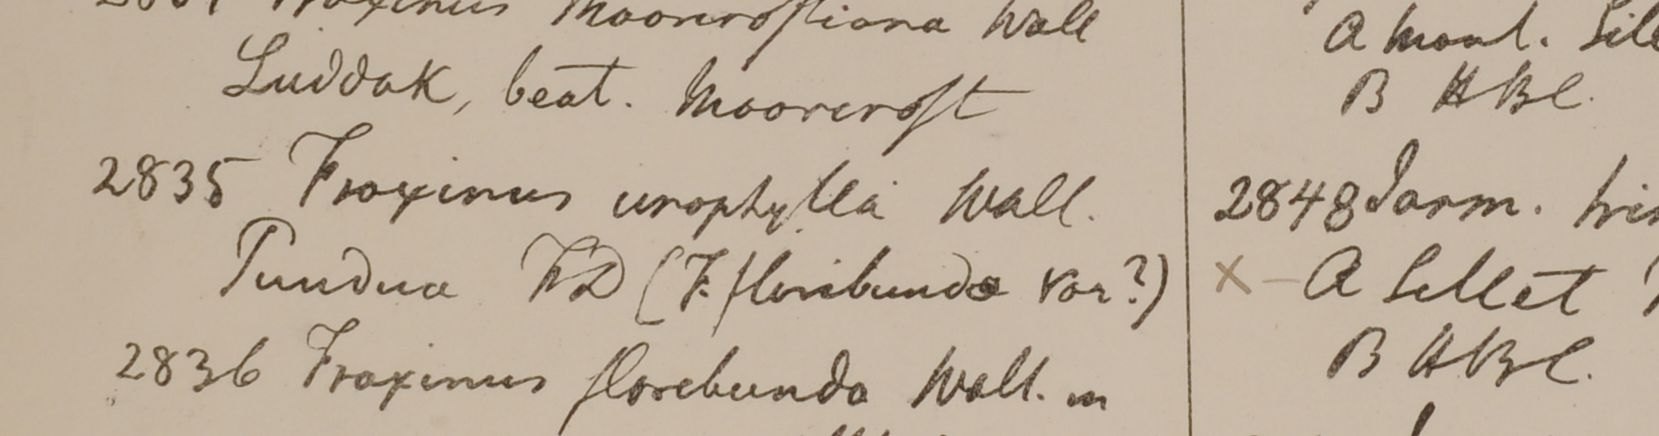 Fraxinus Moorcroftiana Wall
Luddak, beat. Moorcroft
2835 Fraxinus urophylla Wall.
Pundua FD (F. floribunda var?)
2836 Fraxinus floribunda Wall. in
A mont. Sil
B HBC.
2848 Jasm.
x - A Sillet
B HBC.